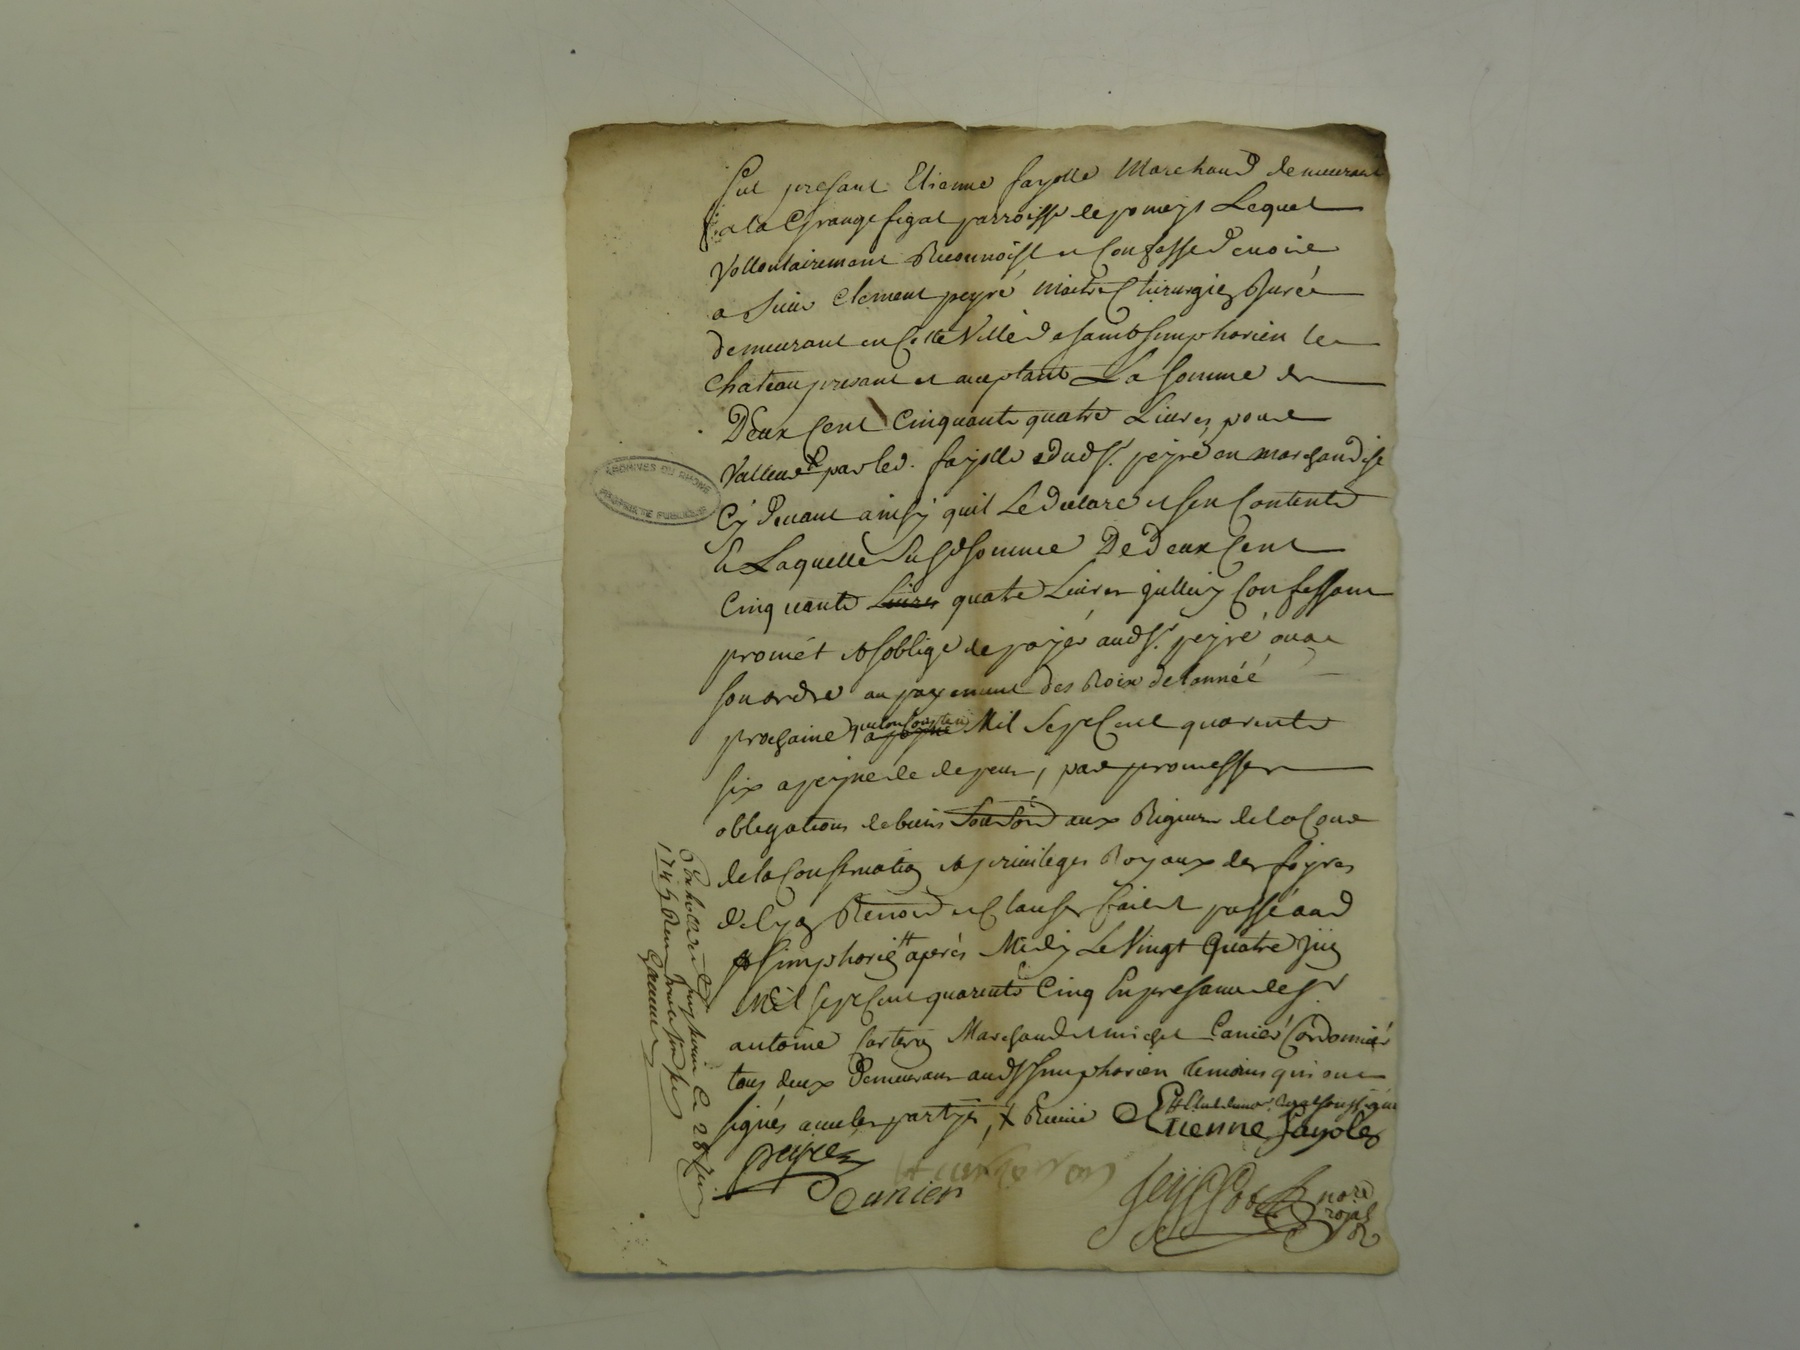 Fut presant Etienne fayolle Marchand demeurant
a la Grange figat parroisse de pomeys Lequel
Vollontairement Reconnoist et Confesse devoir
a Sieur Clement peyré Maitre Chirurgien Juré
demeurant en Cette Ville de Saint Simphorien le
Chateau presant et aceptant La Somme de
Deux Cent Cinquante quatre Livres pour
Valleur par led. fayolle dud Sr. peyré en marchandise
Cy devant ainsy quil Le declare et sen Contente
Laquelle Susd Somme De Deux Cent
Cinquante Livres quatre Livres Confessant
promét et soblige de payér aud Sr. peyré ou a
son ordre au payement des Roix de lannéé
prochaine que lon Comptera Mil Sept Cent quarente
six a peyne de depens, par promesses
obligations de biens aux Rigueurs de la Cour
de la Conservation et privileges Royaux des foyres
de Lyon Renond et Clauses fait et passé aud
St Simphorien aprés Midy Le Vingt Quatre Juin
Mil Sept Cent quarente Cinq En presance de Sr
antoine Marchand et michel Canier Cordonnier
tous deux Demeurant aud St Simphorien temoins qui ont
signés avec les partyes,
Etienne fayolle
peyré
Canier
nore
royal
Controllé a St Simphorien Le 28 Juin
1745 Reçu
ARCHIVES DU RHONE
PROPRIETE PUBLIQUE